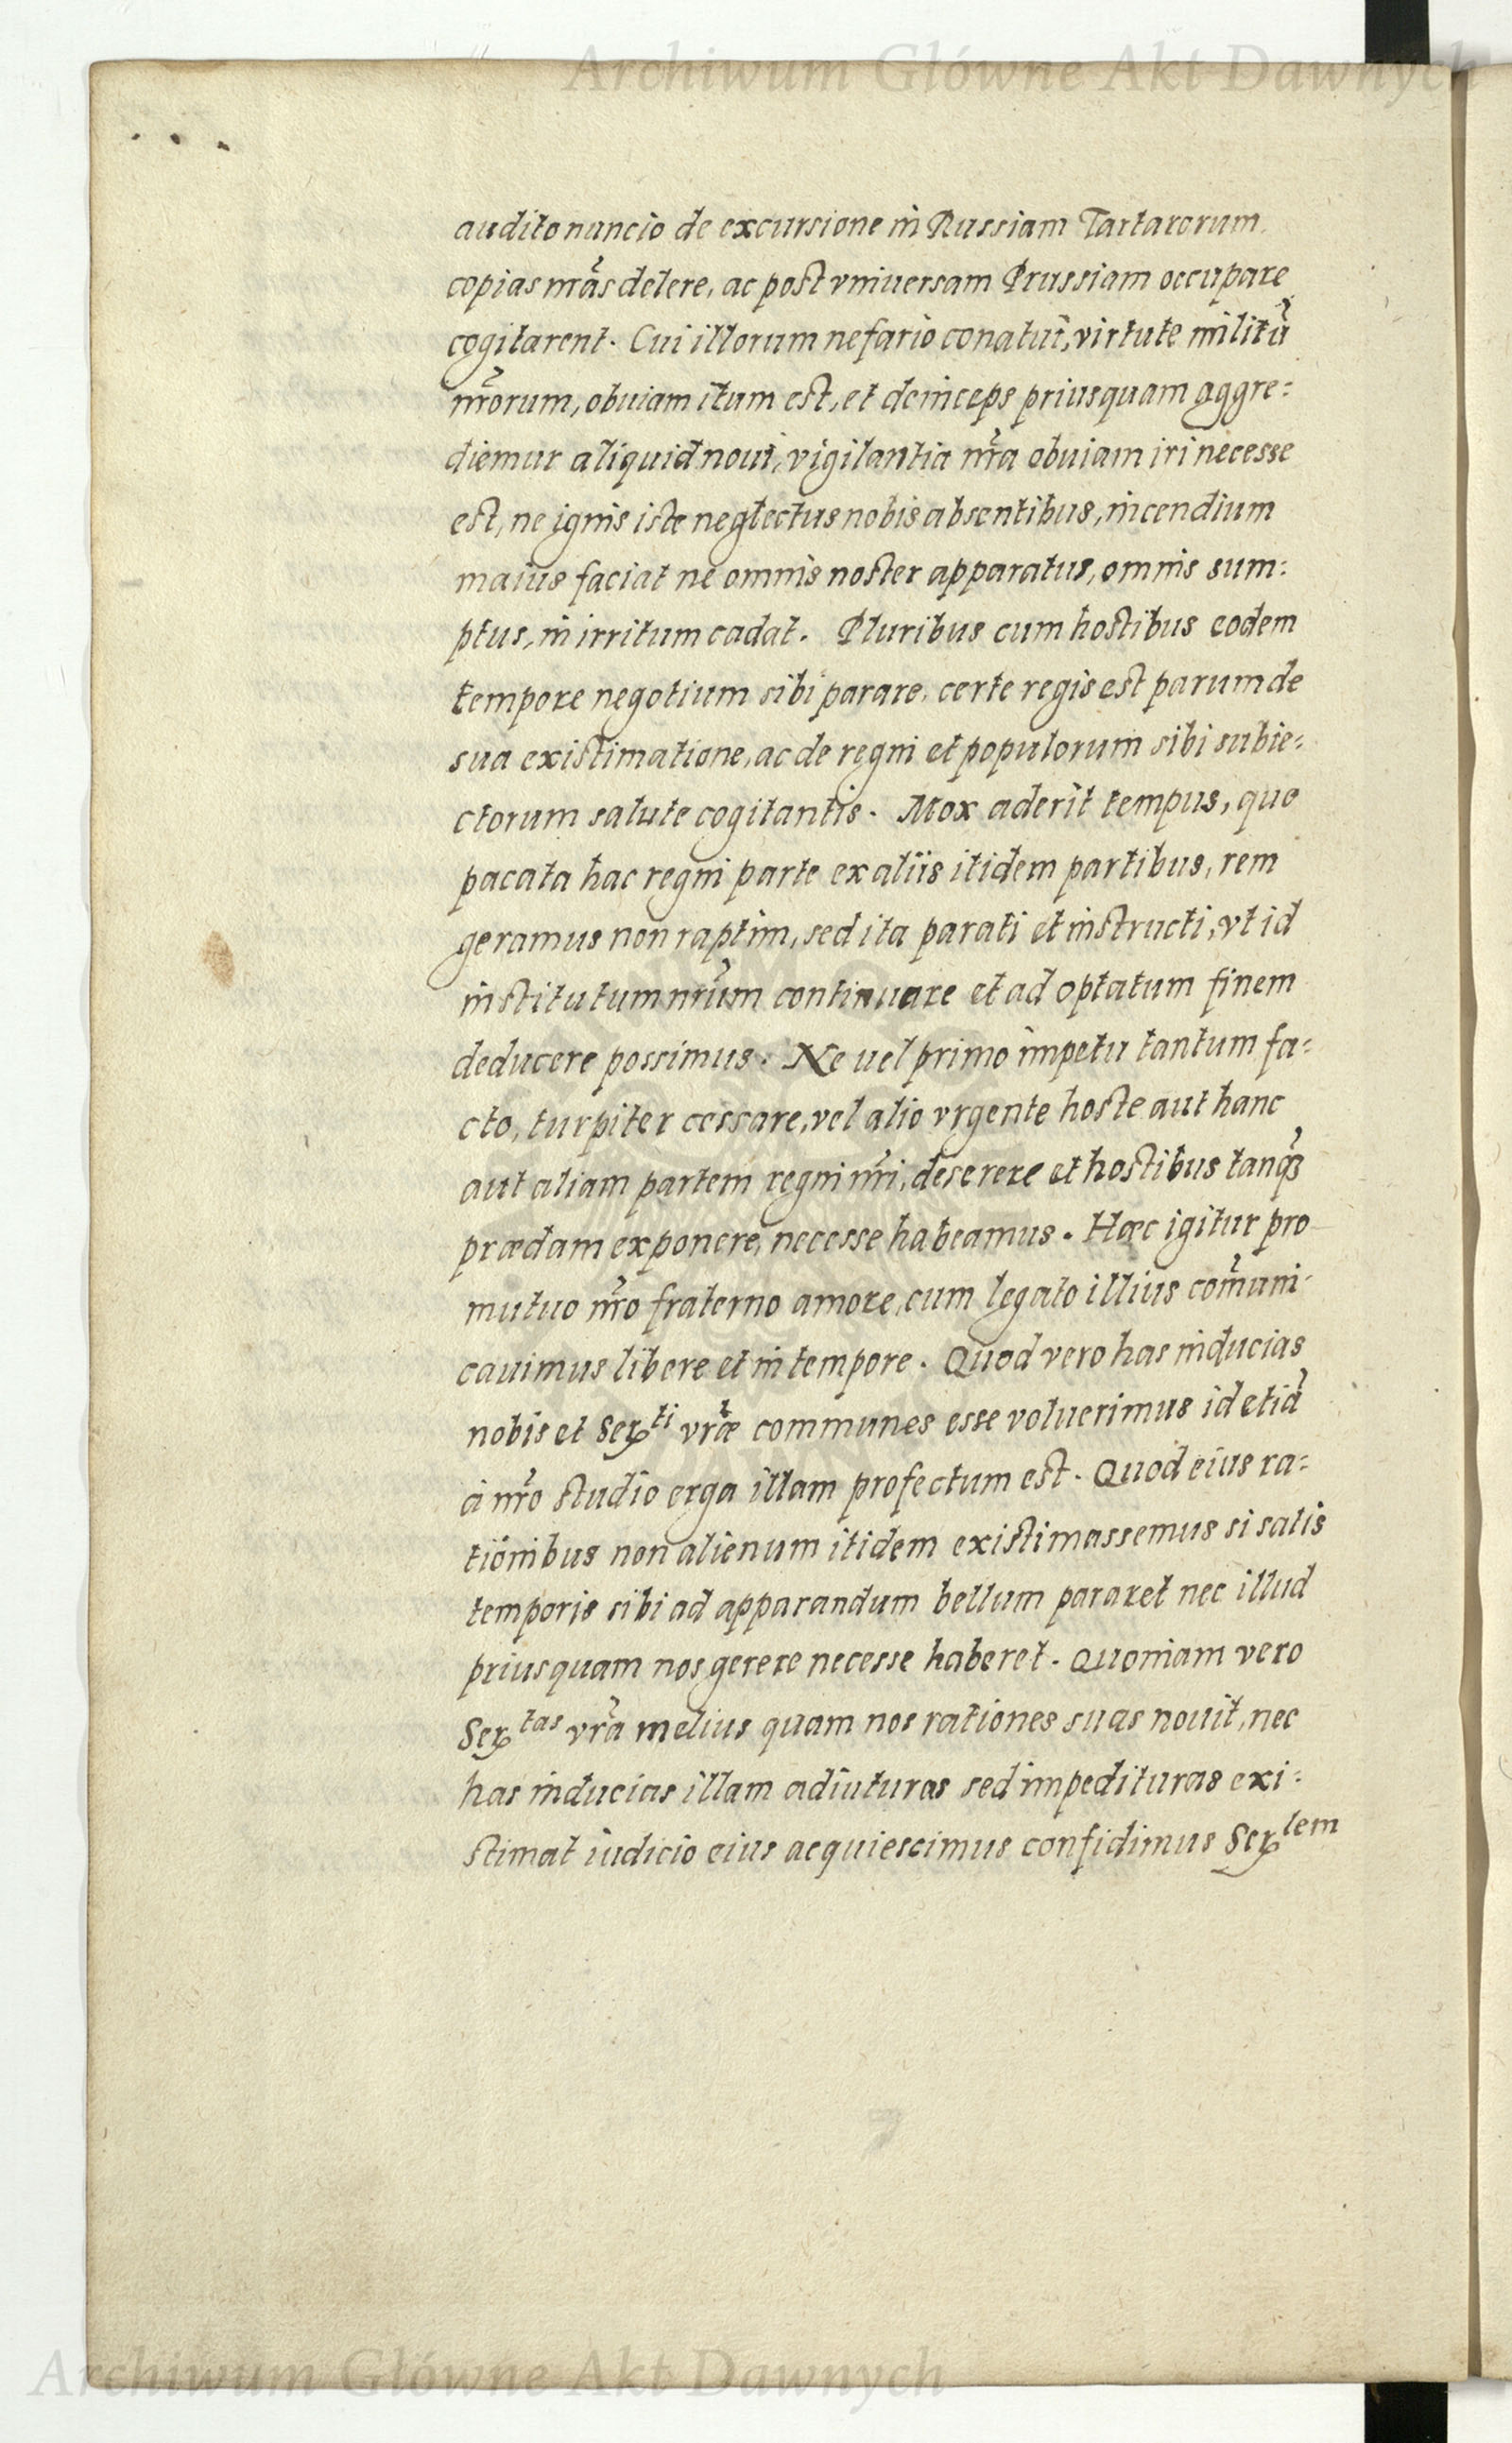 Archiwum Główne Akt Dawnych
audito nuncio de excursione in Russiam Tartarorum.
copias nr̃as delere, ac post vniuersam Prussiam occupare
cogitarent. Cui illorum nefario conatui, virtute militũ
nr̃orum, obuiam itum est, et deinceps priusquam aggre=
diemur aliquid noui, vigilantia nr̃a obuiam iri necesse
est, ne ignis iste neglectus nobis absentibus, incendium
maius faciat ne omnis noster apparatus, omnis sum=
ptus, in irritum cadat. Pluribus cum hostibus eodem
tempore negotium sibi parare, certe regis est parum de
sua existimatione, ac de regni et populorum sibi subie=
ctorum salute cogitantis. Mox aderit tempus, quo
pacata hac regni parte ex aliis itidem partibus, rem
geramus non raptim, sed ita parati et instructi, vt id
institutum nr̃um continuare et ad optatum finem
deducere possimus. Ne uel primo impetu tantum fa=
cto, turpiter cessare, vel alio vrgente hoste aut hanc
aut aliam partem regni nr̃i, deserere et hostibus tanqꝫ
prædam exponere, necesse habeamus. Hæc igitur pro
mutuo nr̃o fraterno amore, cum legato illius com̃uni=
cauimus libere et in tempore. Quod vero has inducias
nobis et Serti vr̃æ communes esse voluerimus id etiã
à nr̃o studio erga illam profectum est. Quod eius ra=
tionibus non alienum itidem existimassemus si satis
temporis sibi ad apparandum bellum pararet nec illud
priusquam nos gerere necesse haberet. Quoniam vero
Sertas vr̃a melius quam nos rationes suas nouit, nec
has inducias illam adiuturas sed impedituras exi=
stimat iudicio eius acquiescimus confidimus Sertem
Archiwum Główne Akt Dawnych